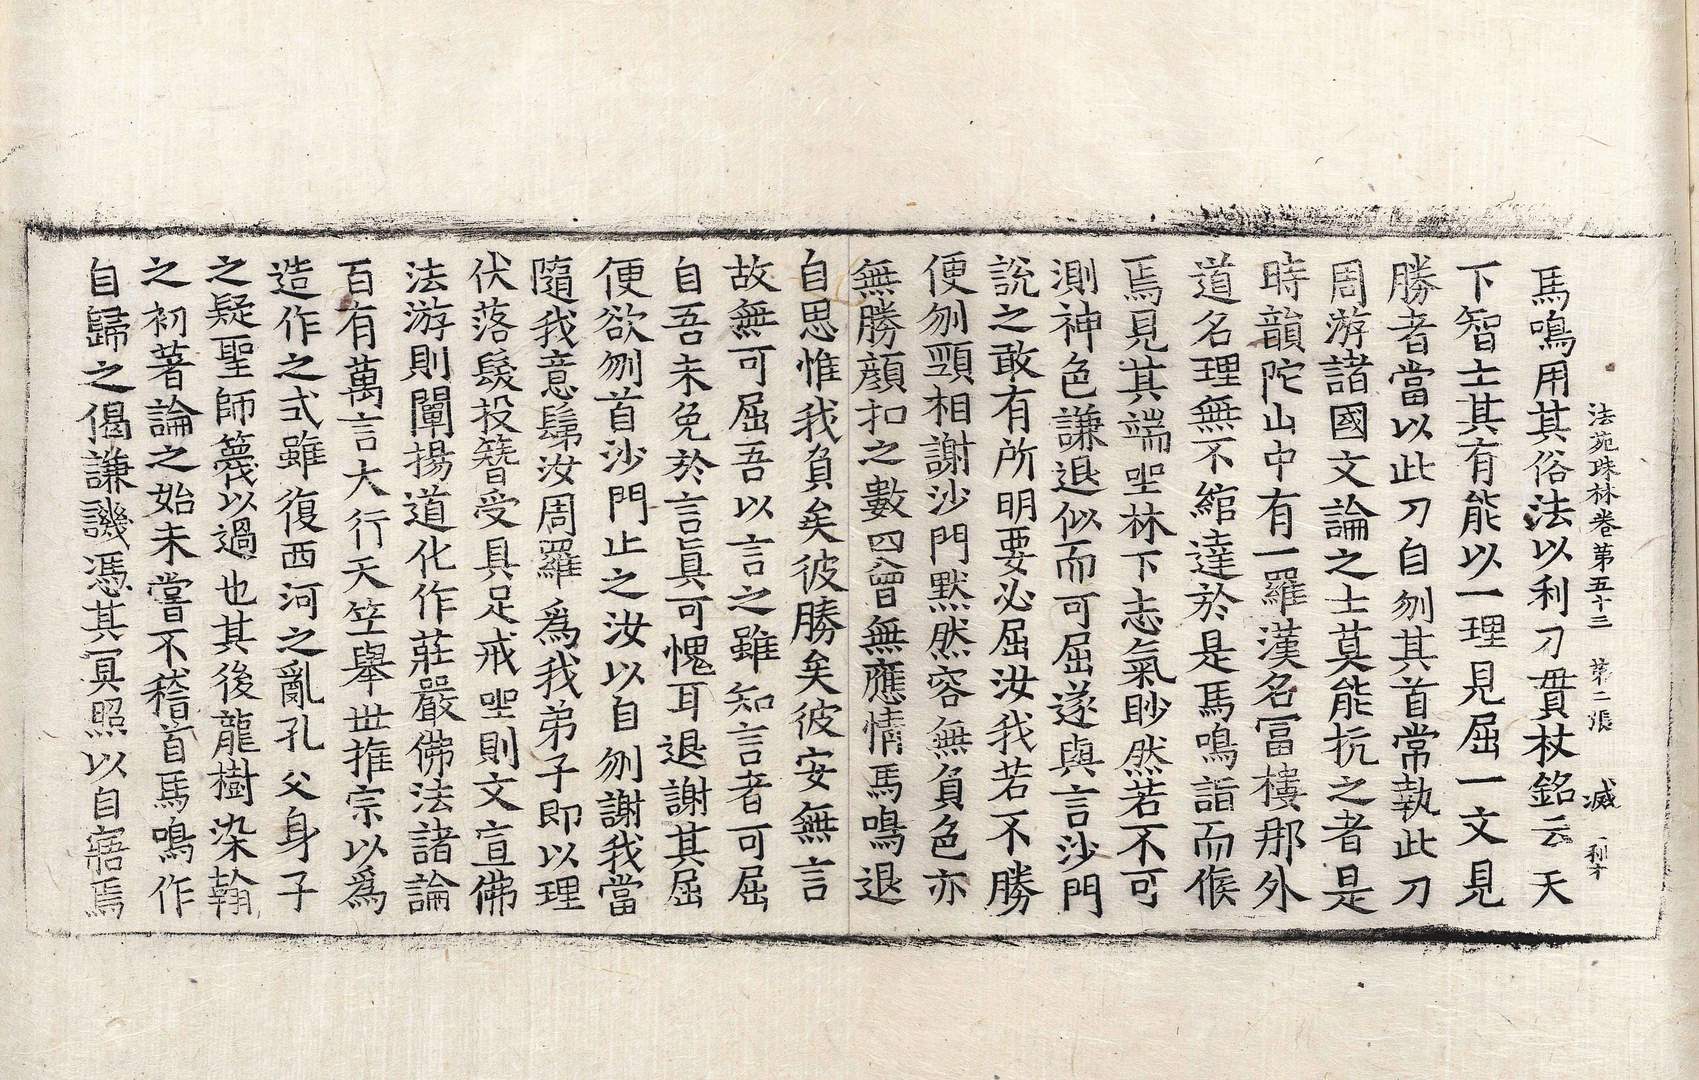 法苑珠林卷第五十三 第二張 滅
馬鳴用其俗法以利刀貫杖銘云天
下智士其有能以一理見屈一文見
勝者當以此刀自刎其首常執此刀
周游諸國文論之士莫能抗之者是
時韻陀山中有一羅漢名冨樓那外
道名理無不綰達於是馬鳴詣而候
焉見其端坐林下志氣眇然若不可
測神色謙退似而可屈遂與言沙門
說之敢有所明要必屈汝我若不勝
便刎頸相謝沙門默然容無負色亦
無勝顔扣之數四曾無應情馬鳴退
自思惟我負矣彼勝矣彼安無言
故無可屈吾以言之雖知言者可屈
自吾未免於言眞可愧耳退謝其屈
便欲刎首沙門止之汝以自刎謝我當
隨我意髴汝周羅爲我弟子即以理
伏落髮投簪受具足戒坐則文宣佛
法游則闡揚道化作莊嚴佛法諸論
百有萬言大行天竺舉世推宗以爲
造作之式雖復西河之亂孔父身子
之疑聖師蔑以過也其後龍樹染翰
之初著論之始未嘗不稽首馬鳴作
自歸之偈謙譏馮其冥照以自寤焉